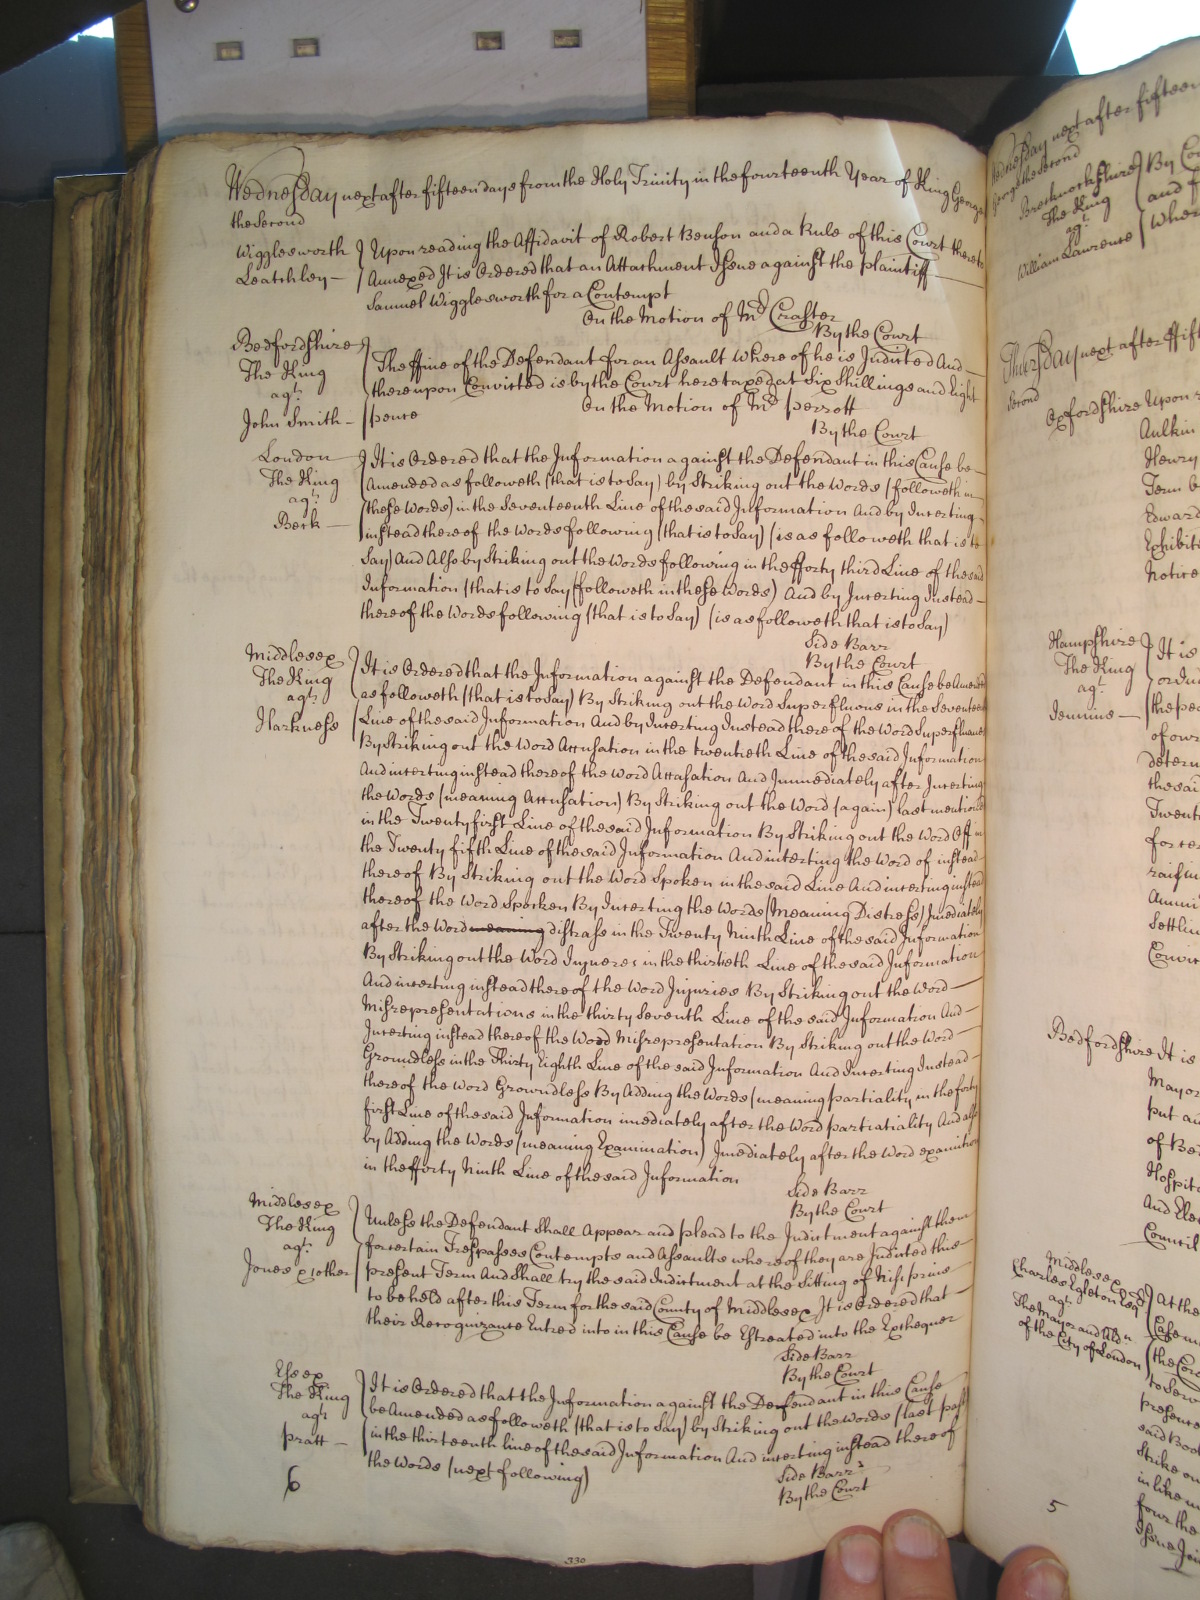 Wednesday next after fifteen days from the Holy Trinity in the fourteenth Year of King George
the Second
Wigglesworth
Leatchley
Upon reading the Affidavit of Robert Benson and a Rule of this Court thereto
Annexed It is Ordered that an Attachment Issue against the plaintiff
Samuel Wigglesworth for a Contempt
On the Motion of Mr Craster
By the Court
Bedfordshire
The King
agt.
John Smith
The ffine of the Defendant for an Assault Where of he is Indicted And
thereupon Convicted is by the Court here taxed at Six Shillings and Eight
pence
On the Motion of Mr perrott
By the Court
London
The King
agt.
Beck
It is Ordered that the Information against the Defendant in this Cause be
Amended as followeth (that is to Say) by Striking out the Words (followeth in
these Words) in the Seventeenth Line of the said Information And by Inserting
instead there of the Words following (that is to Say) (is as followeth that is to
Say) And Also by Striking out the Words following in the fforty third Line of the said
Information (that is to Say (followeth in these Words) And by Inserting Instead
there of the Words following (that is to Say) (is as followeth that is to Say)
Side Barr
By the Court
Middlesex
The King
agt.
Harkness
It is Ordered that the Information against the Defendant in this Cause be Amended
as followeth (that is to Say) By Striking out the Word Superfluous in the Seventeenth
Line of the said Information And by Inserting Instead there of the Word Superfluous
By Striking out the Word Accusation in the twentieth Line of the said Information
And inserting instead there of the Word Accasation And Immediately after Inserting
the Words (meaning Accusation) By Striking out the Word (again) last mentioned
in the Twenty first Line of the said Information By Striking out the Word Off in
the Twenty fifth Line of the said Information And inserting the Word of instead
there of By Striking out the Word Spoken in the said Line And inserting instead
there of the Word Spocken By Inserting the Words (Meaning Distress) Imediately
after the Word meaning distrass in the Twenty Ninth Line of the said Information
By Striking out the Word Injueres in the thirtieth Line of the said Information
And inserting instead there of the Word Injuries By Striking out the Word
Misrepresentations in the thirty Seventh Line of the said Information And
Inserting instead there of the Word Misrepresentation By Striking out the Word
Groundless in the Thirty Eighth Line of the said Information And Inserting Instead
there of the Word Growndless By Adding the Words (meaning partiality in the forty
first Line of the said Information imediately after the Word partiatiality And also
by Adding the Words (meaning Examination) Imediately after the Word examition
in the fforty Ninth Line of the said Information
Side Barr
By the Court
Middlesex
The King
agt.
Jones & other
Unless the Defendant Shall Appear and plead to the Indictment against them
for certain Trespasses Contempts and Assaults where of they are Indicted this
present Term And Shall try the said Indictment at the Sitting of Nisi prius
to be held after this Term for the said County of Middlesex It is Ordered that
their Recognizance Entred into in this Cause be Estreated into the Exchequer
Side Barr
By the Court
Essex
The King
agt.
pratt
It is Ordered that the Information against the Defendant in this Cause
be Amended as followeth (that is to Say) by Striking out the Words (last past
in the thirteenth line of the said Information And inserting instead there of
the Words (next following)
Side Barr
By the Court
6
330
Wednesday next after fifteen
George the Second
Brecknockshire
The King
agt.
William Lawrence
By Co
and f
Wher
Thursday next after ffift
Second
Oxfordshire Upon r
Aulkin
Henry
Term b
Edward
Exhibit
Notice
Hampshire
The King
agt.
Jennins
It is
ordere
the pe
of our
determ
the said
Twent
for re
raisin
Ammu
Settlin
Convic
Bedfordshire It is
Mayor
put an
of Be
Hospit
And Ele
Council
Middlesex
Charles Egleton Esq
agt.
The Mayor and Ald
of the City of London
At the
Case m
the Cor
to Serv
present
said Boo
Strike ou
in like m
four the
Issue Joi
5